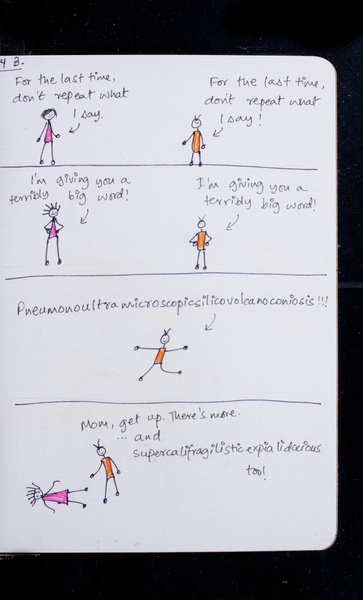 43.
For the last time,
don't repeat what
I say.
For the last time,
don't repeat what
I say!
I'm giving you a
terribly big word!
I'm giving you a
terribly big word!
Pneumonoultramicroscopicsilicovolcanoconiosis!!!
Mom, get up. There's more.
... and
supercalifragilisticexpialidocious
too!